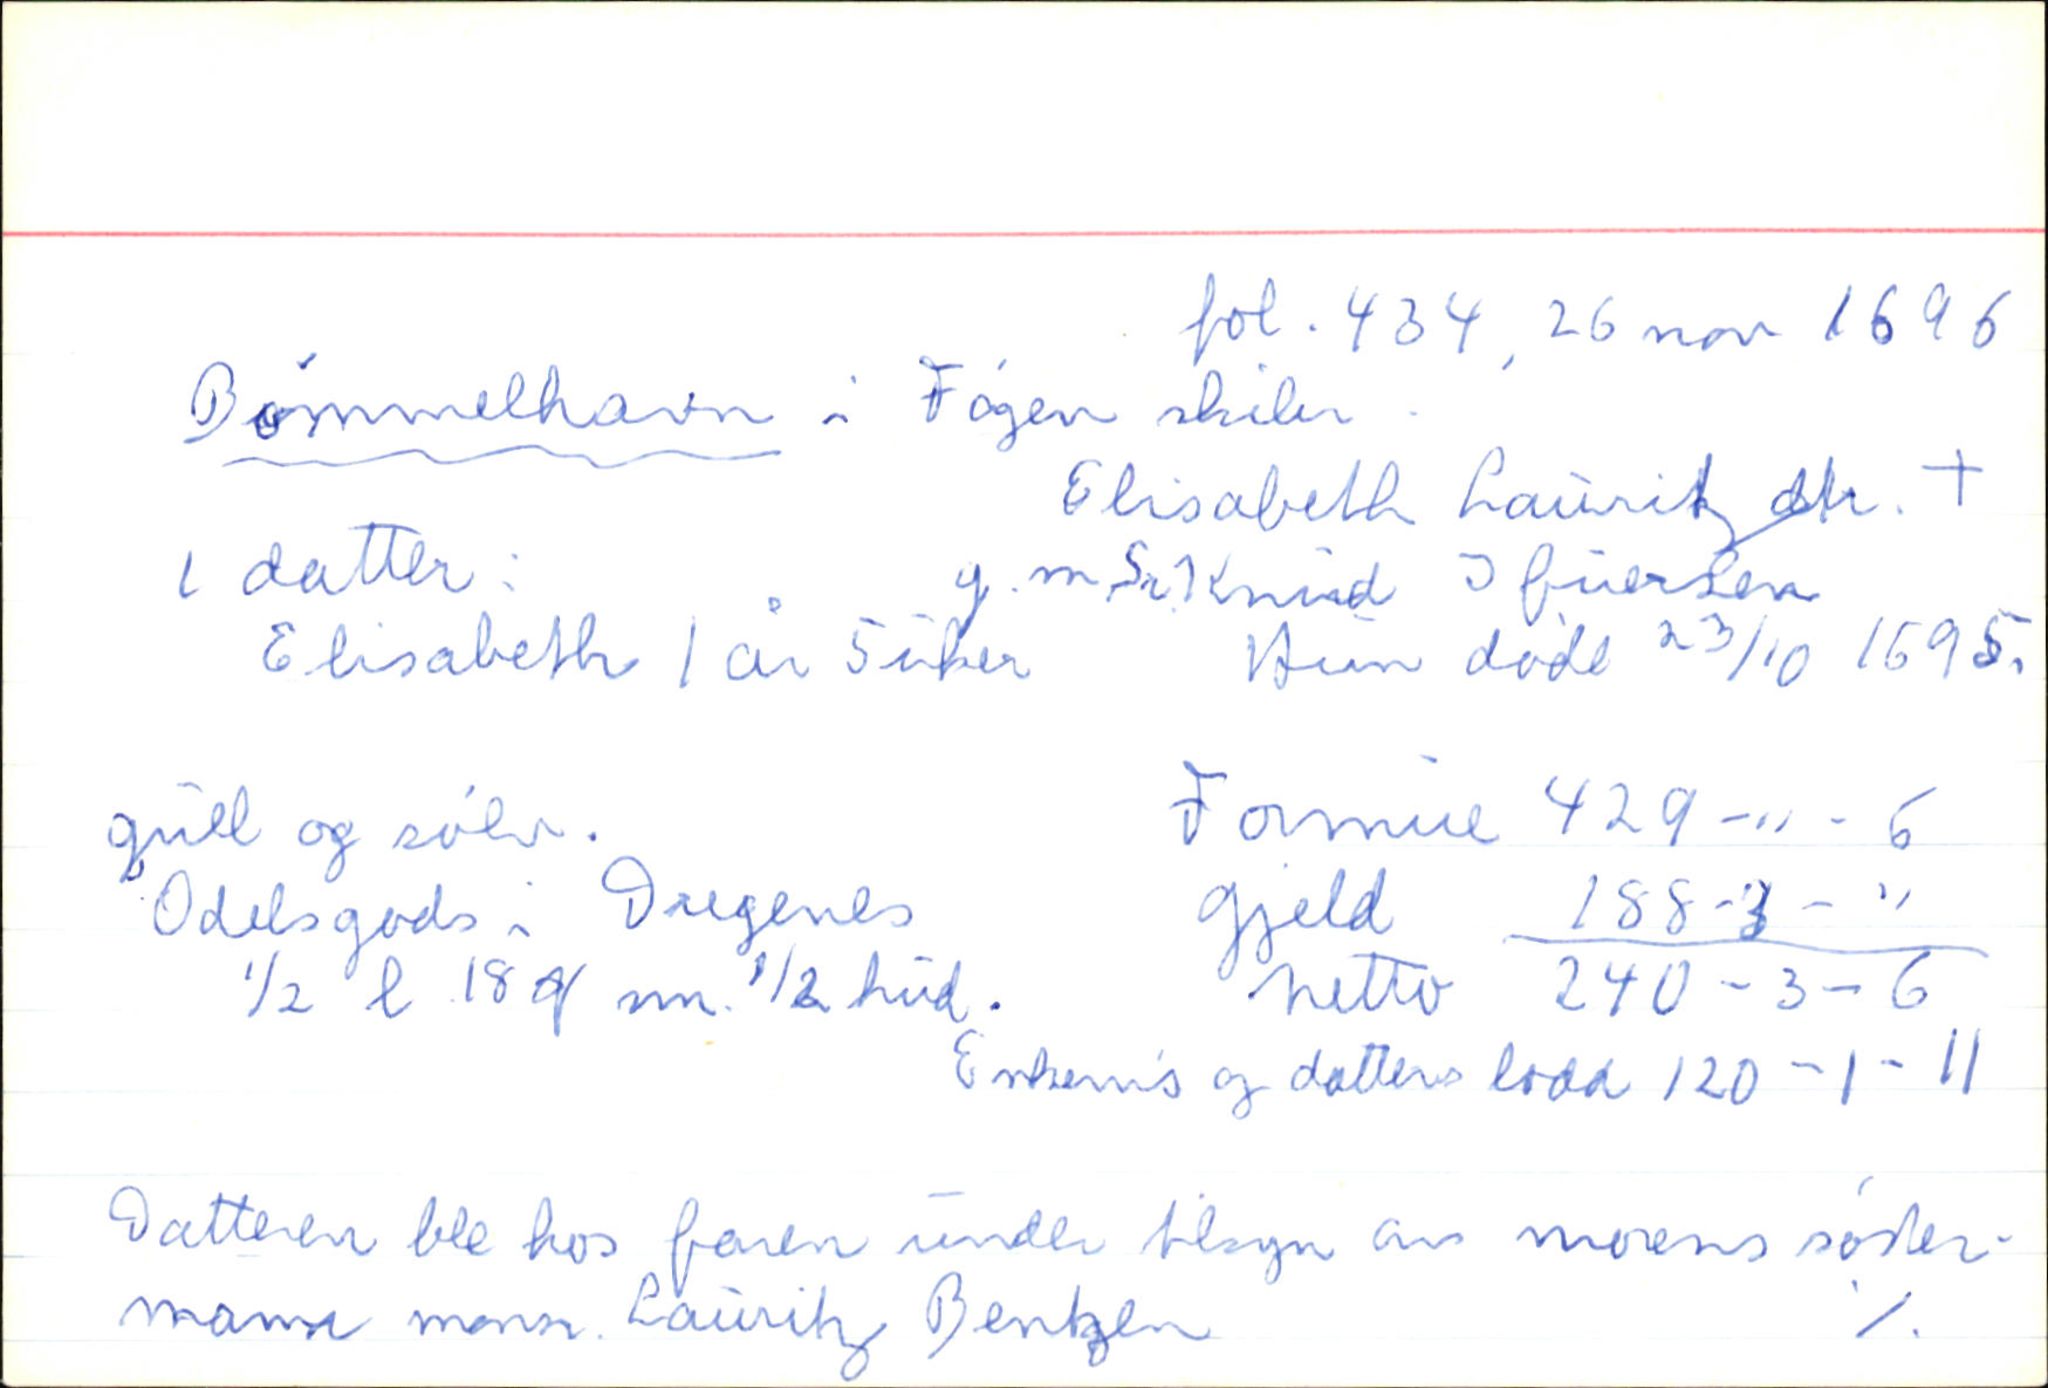 fol. 434, 26 nov 1696
Bømmelhavn i Føgen skiler.
Elisabeth Lauritz dtr. +
1 datter: g. m. Sr. Knud Ifuersen
Elisabeth 1 år 5 uker Hun døde 23/10 1695.
gull og sølv. Formue 429-"-6
Odelsgods i Dregenes Gjeld 188-3-"
1/2 l 18 q sm. 1/2 hud. Netto 240-3-6
Enkem's og datters lodd 120-1-11
Datteren ble hos faren under tilsyn av morens søster-
mann monsr. Lauritz Bentzen ./.